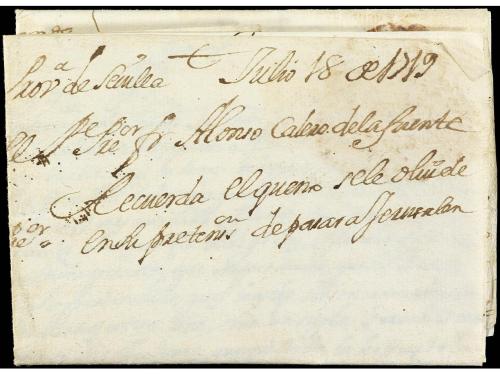 Prov.ª de Sevilla Julio 18 de 1719
El Pe Por fr Alonso Calero de la fuente
Recuerda el que no sele olvide
en su pretenon de pasar a Jerusalen